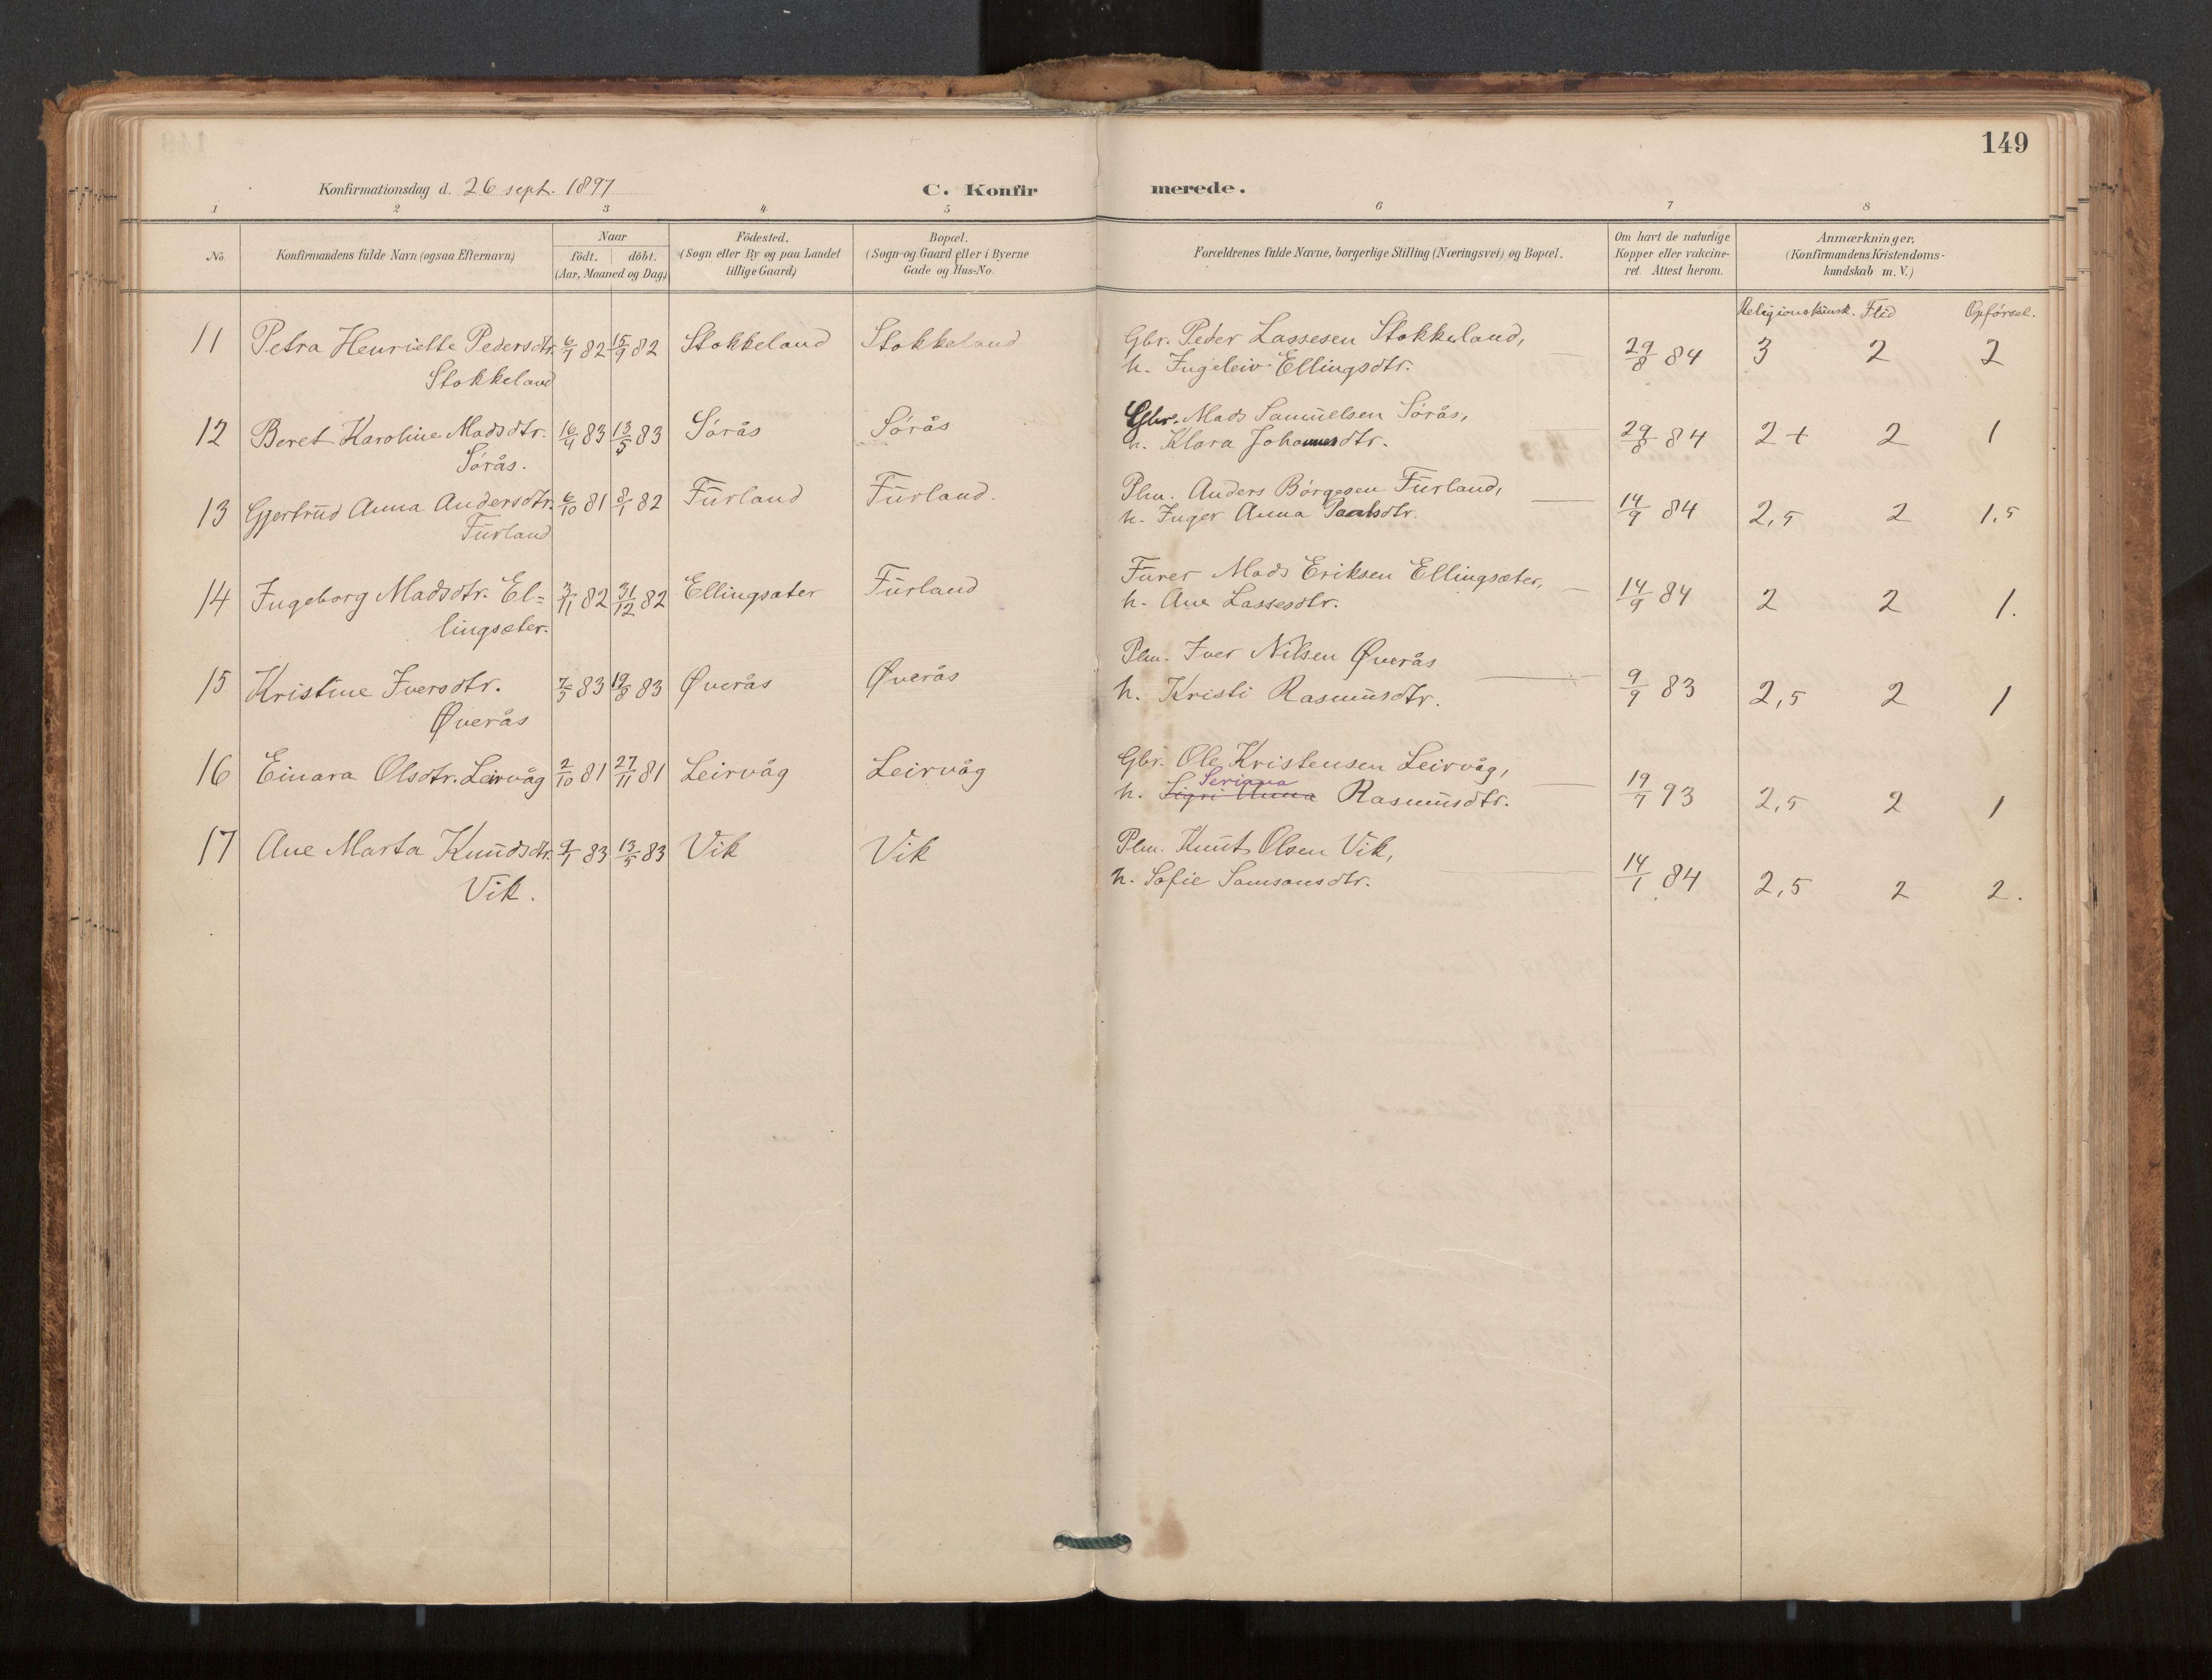 149
Konfirmationsdag d. 26 sept. 1897 C. Konfir merede.
1 2 3 4 5 6 7 8
No. Konfirmandens fulde Navn (ogsaa Efternavn) Naar födt. döbt. (Aar, Maaned og Dag) Födested. (Sogn eller By og paa Landet tillige Gaard) Bopæl. (Sogn og Gaard eller i Byerne Gade og Hus-No. Forældrenes fulde Navne, borgerlige Stilling (Næringsvei) og Bopæl. Om havt de naturlige Kopper eller vakcineret. Attest herom. Anmærkninger, (Konfirmandens Kristendomskundskab m. V.)
Religionskunsk. Flid Opførsel.
11 Petra Henriette Pedersdtr. 6/7 82 15/9 82 Stokkeland Stokkeland Gbr. Peder Lassesen Stokkeland, 29/8 84 3 2 2
Stokkeland h. Ingeleiv Ellingsdtr.
12 Beret Karoline Madsdtr. 16/4 83 13/5 83 Sørås Sørås Gbr. Mads Samuelsen Sørås, 29/8 84 2+ 2 1
Sørås. h. Klara Johannesdtr.
13 Gjertrud Anna Andersdtr. 6/10 81 8/1 82 Furland Furland. Plm. Anders Børgesen Furland, 14/9 84 2,5 2 1,5
Furland h. Inger Anna Paalsdtr.
14 Ingeborg Madsdtr. El= 3/11 82 31/12 82 Ellingsæter Furland Furer Mads Eriksen Ellingsæter, 14/9 84 2 2 1.
lingsæter. h. Ane Lassesdtr.
15 Kristine Iversdtr. 7/5 83 19/8 83 Øverås Øverås Plm. Iver Nilsen Øverås 9/9 83 2,5 2 1
Øverås h. Kristi Rasmusdtr.
16 Einara Olsdtr. Leirvåg 2/10 81 27/11 81 Leirvåg Leirvåg Gbr. Ole Kristensen Leirvåg, 19/7 93 2,5 2 1
Seriana
h. Sigri Anna Rasmusdtr.
17 Ane Marta Knudsdtr. 9/1 83 13/5 83 Vik Vik Plm. Knut Olsen Vik, 14/1 84 2,5 2 2.
Vik. h. Sofie Samsonsdtr.